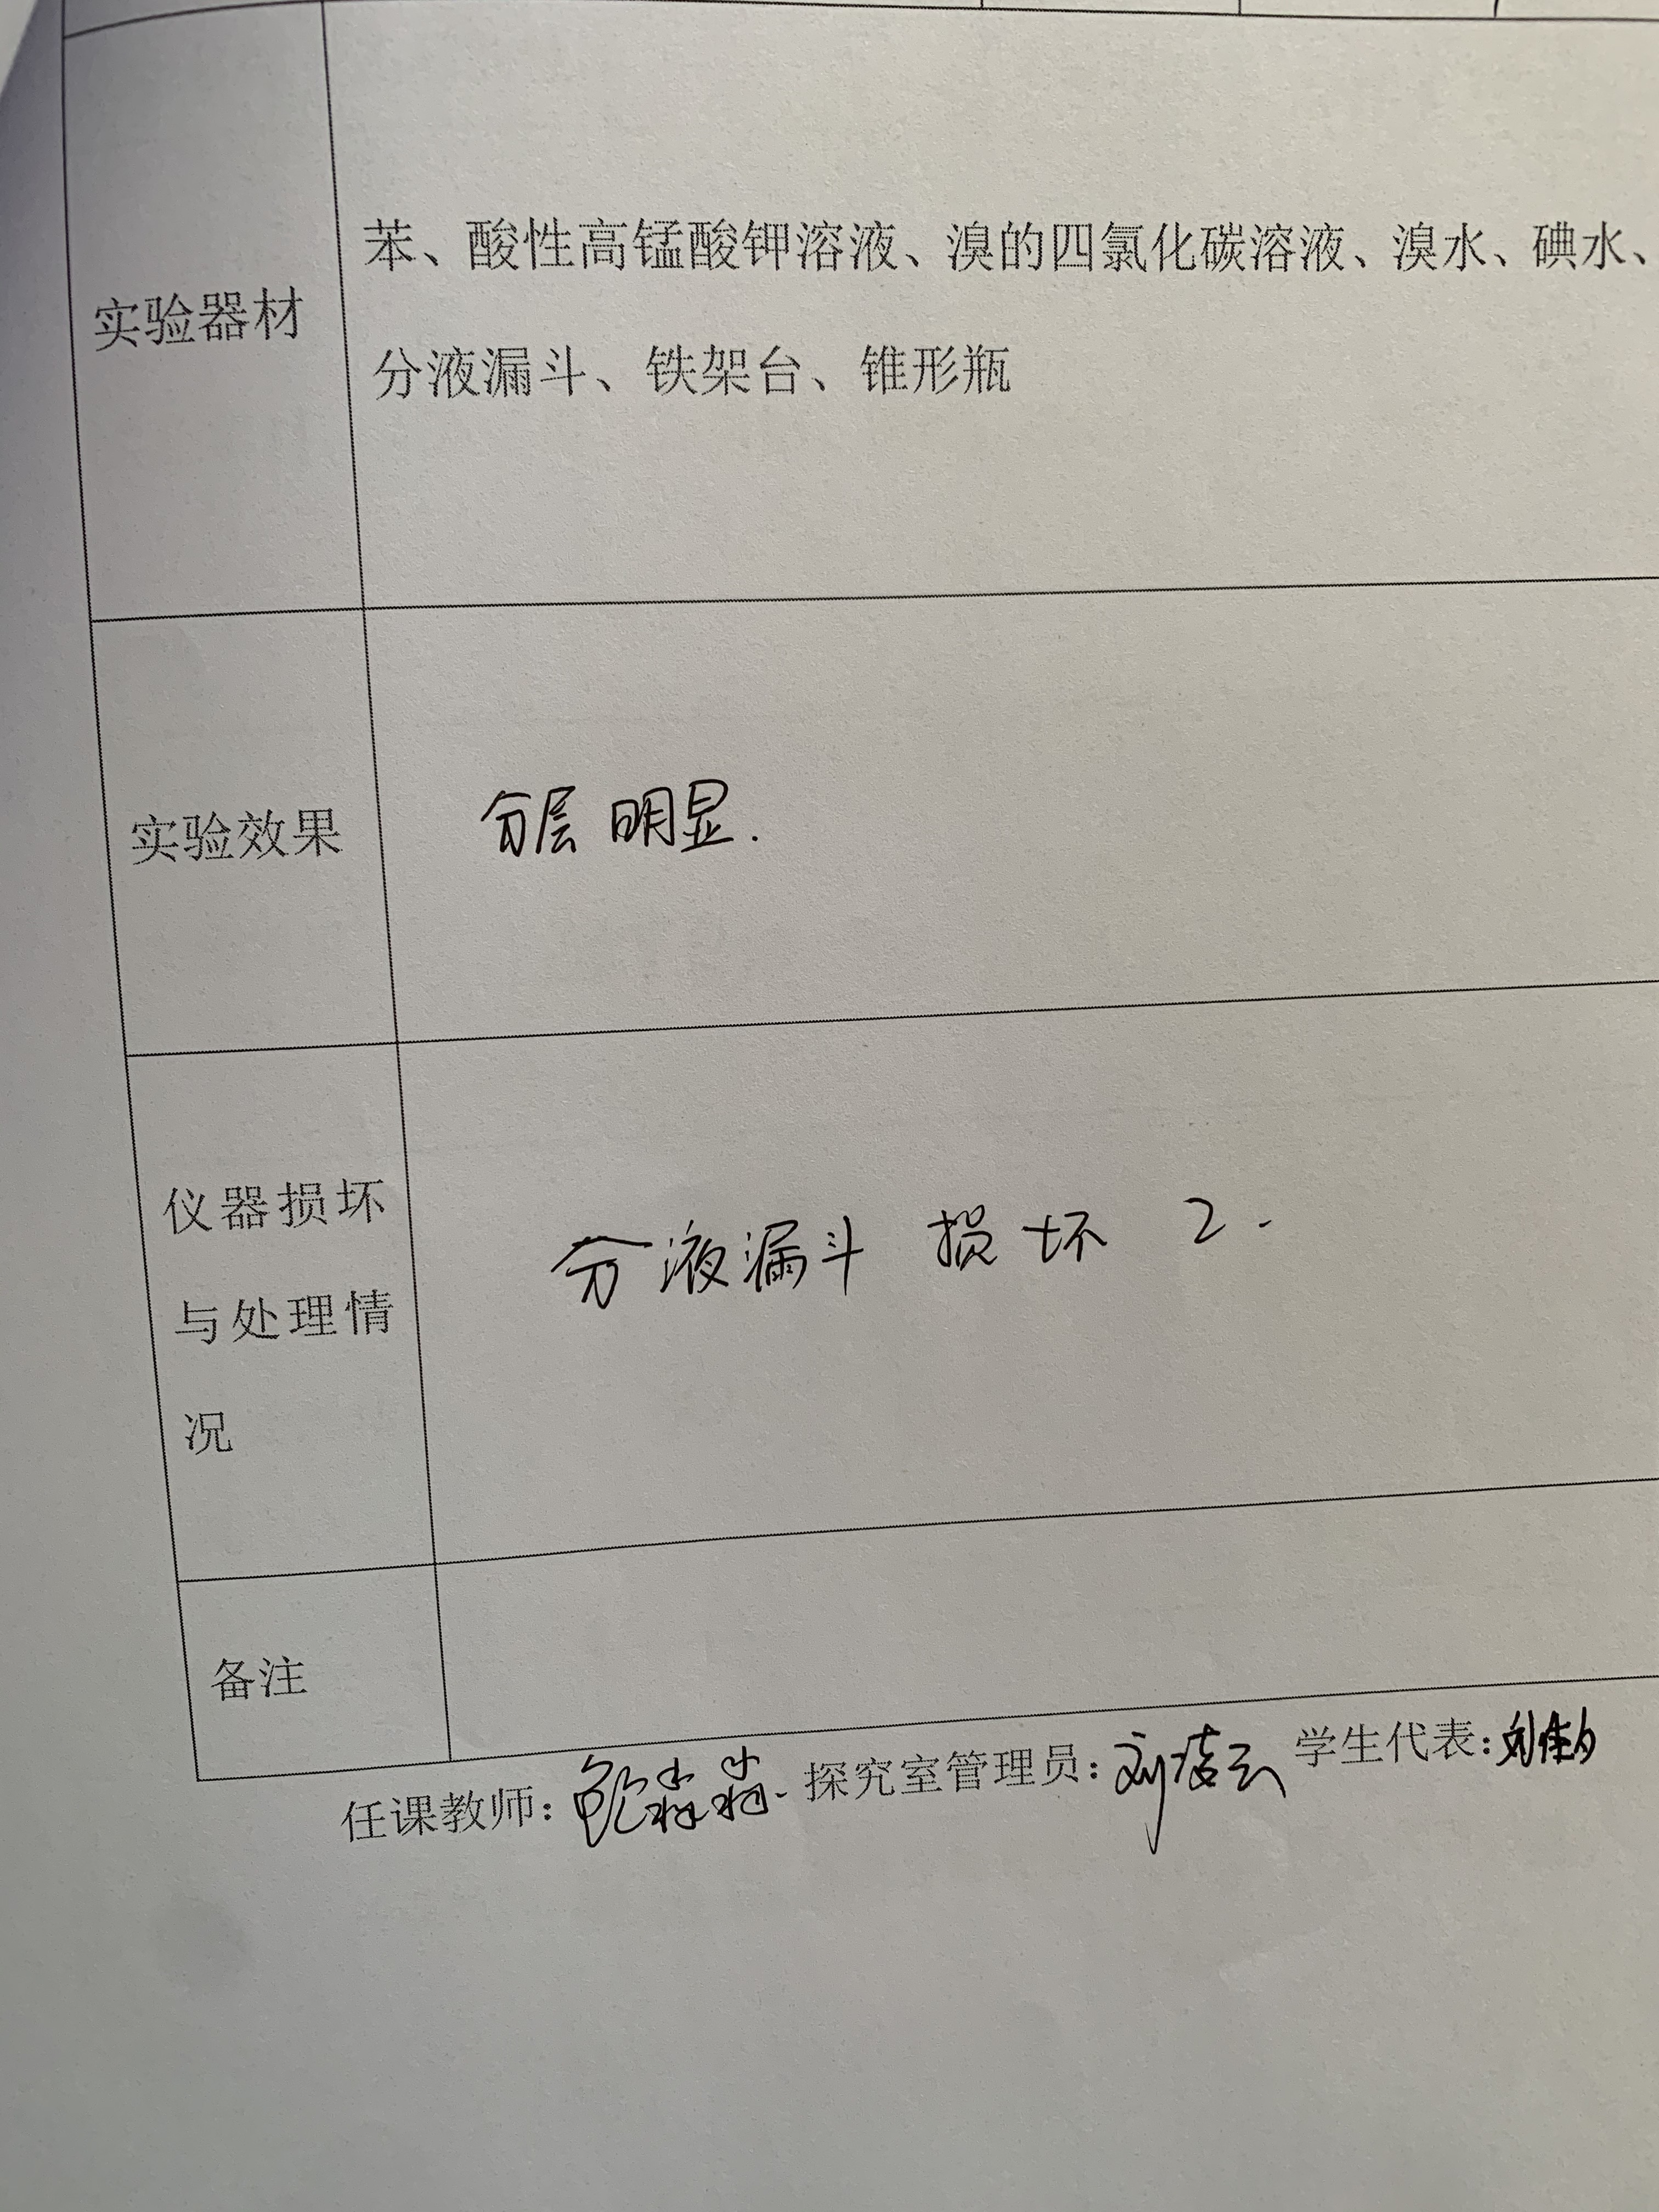 实验器材
苯、酸性高锰酸钾溶液、溴的四氯化碳溶液、溴水、碘水、
分液漏斗、铁架台、锥形瓶
实验效果
分层明显.
仪器损坏
与处理情
况
分液漏斗 损坏 2.
备注
任课教师: 探究室管理员:刘洁云 学生代表: